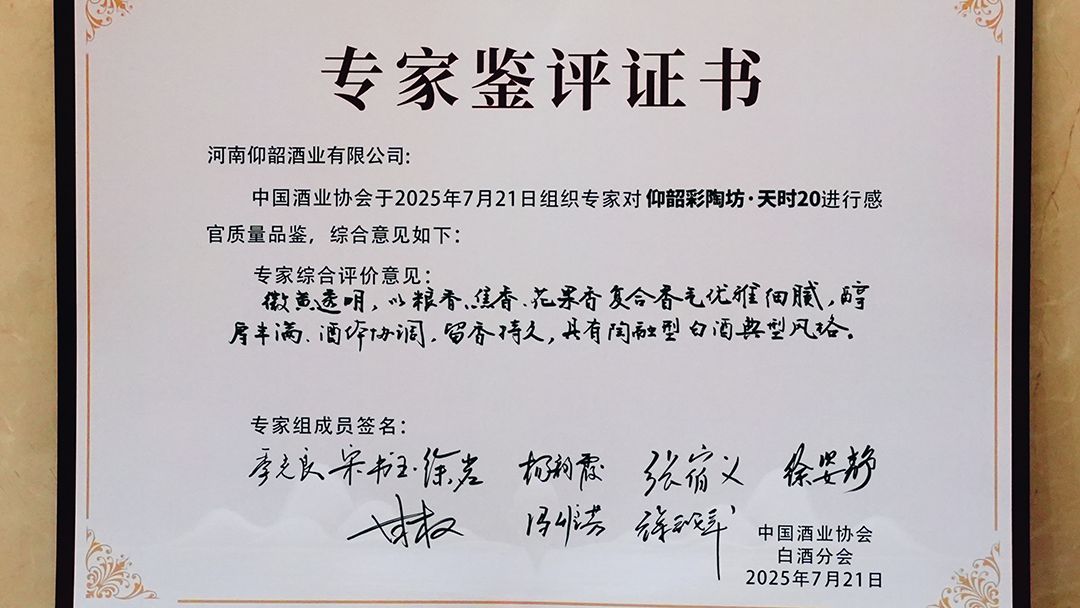 专家鉴评证书
河南仰韶酒业有限公司:
中国酒业协会于2025年7月21日组织专家对仰韶彩陶坊·天时20进行感
官质量品鉴，综合意见如下：
专家综合评价意见：
微黄透明，以粮香、焦香、花果香复合香气优雅细腻，醇
厚丰满、酒体协调，留香持久，具有陶融型白酒典型风格。
专家组成员签名：
季克良 宋书玉 徐岩 张宿义 徐姿静
中国酒业协会
白酒分会
2025年7月21日